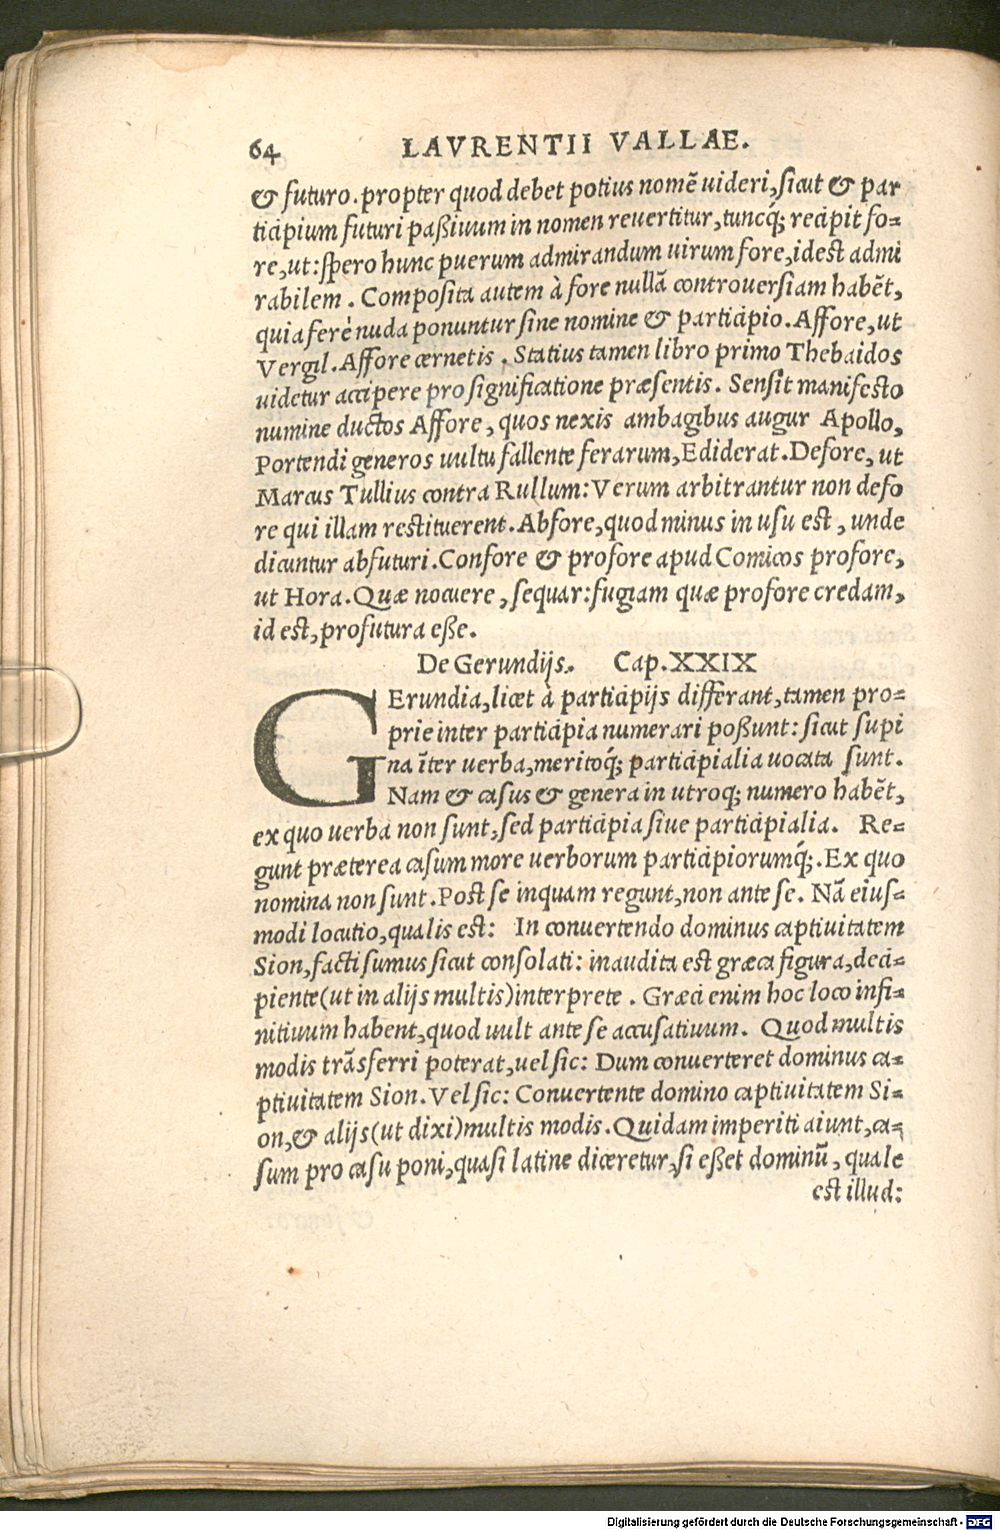 64 LAVRENTII VALLAE.
& futuro. propter quod debet potius nomẽ uideri, sicut & par
ticipium futuri paßiuum in nomen reuertitur, tuncq́; recipit fo-
re, ut: spero hunc puerum admirandum uirum fore, idest admi
rabilem. Composita autem à fore nullã controuersiam habẽt,
quia ferè nuda ponuntur sine nomine & participio. Affore, ut
Vergil. Affore cernetis. Statius tamen libro primo Thebaidos
uidetur accipere pro significatione præsentis. Sensit manifesto
numine ductos Affore, quos nexis ambagibus augur Apollo,
Portendi generos uultu fallente ferarum, Ediderat. Defore, ut
Marcus Tullius contra Rullum: Verum arbitrantur non defo
re qui illam restituerent. Abfore, quod minus in usu est, unde
dicuntur abfuturi. Confore & profore apud Comicos profore,
ut Hora. Quæ nocuere, sequar: fugiam quæ profore credam,
id est, profutura eße.
De Gerundijs. Cap. XXIX
GErundia, licet à participijs differant, tamen pro-
prie inter participia numerari poßunt: sicut supi
na ĩter uerba, meritoq́; participialia uocata sunt.
Nam & casus & genera in utroq; numero habẽt,
ex quo uerba non sunt, sed participia siue participialia. Re-
gunt præterea casum more uerborum participiorumq́;. Ex quo
nomina non sunt. Post se inquam regunt, non ante se. Nã eius-
modi locutio, qualis est: In conuertendo dominus captiuitatem
Sion, facti sumus sicut consolati: inaudita est græca figura, deci-
piente (ut in alijs multis) interprete. Græci enim hoc loco infi-
nitiuum habent, quod uult ante se accusatiuum. Quod multis
modis trãsferri poterat, uel sic: Dum conuerteret dominus ca-
ptiuitatem Sion. Vel sic: Conuertente domino captiuitatem Si-
on, & alijs (ut dixi) multis modis. Quidam imperiti aiunt, ca-
sum pro casu poni, quasi latine diceretur, si eßet dominũ, quale
est illud:
Digitalisierung gefördert durch die Deutsche Forschungsgemeinschaft - DFG